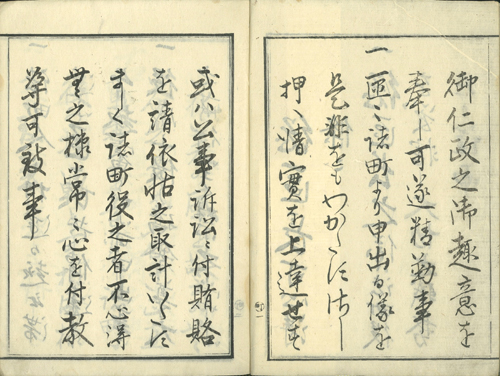 御仁政之御趣意を
奉し可遂精勤事
一 区々諸町より申出る儀を
是非をもわかたすさし
押へ情実を上達せす
或ハ公事訴訟ニ付賄賂
を請依怙之取計いたす
ましく諸町役之者不心得
無之様常々心を付教
導可致事